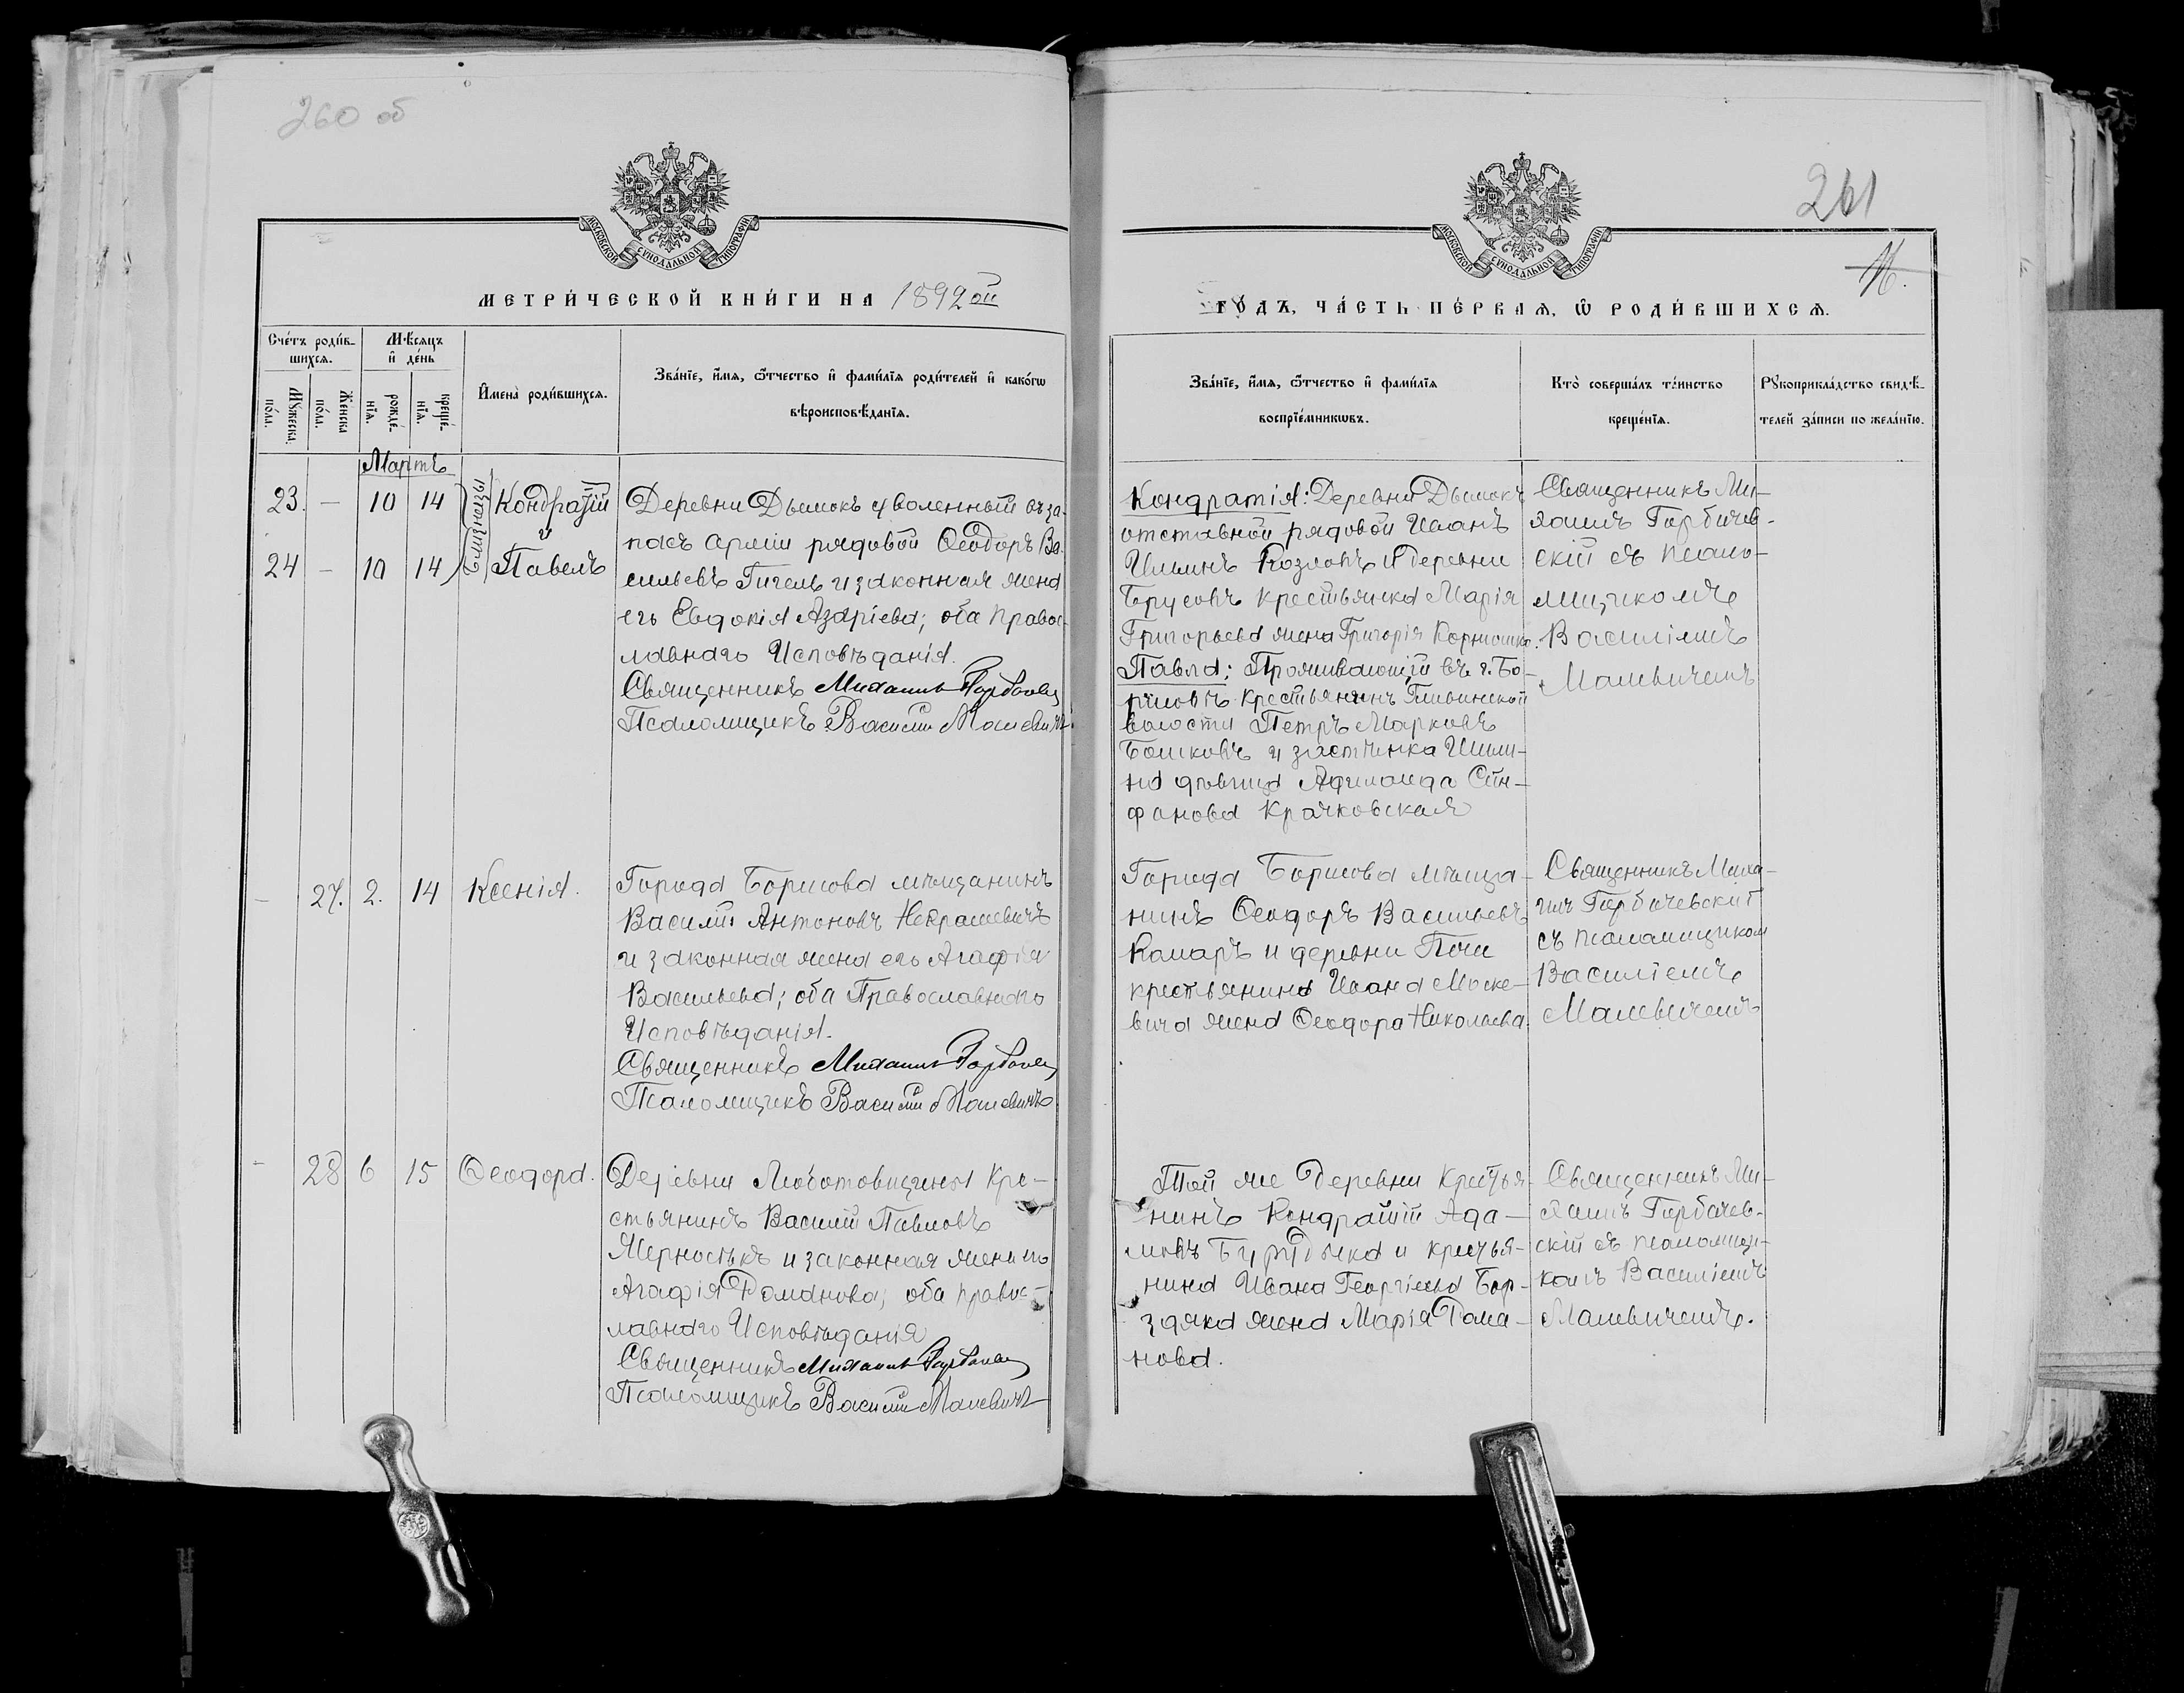 260 об
МОСКОВСКОЙ СѴНОДАЛЬНОЙ ТИПОГРАФІИ
МЕТРИ́ЧЕСКОЙ КНИ́ГИ НА 1892 ой
Сче́тъ роди́в-
шихсѧ.
Мѣ́сѧцъ
и҆ де́нь
Мꙋ́жеска
по́ла.
Же́нска
по́ла.
рожде́-
нїѧ.
креще́-
нїѧ.
И҆мена̀ роди́вшихсѧ.
Зва́нїе, и҆́мѧ, ѻ҆́тчество и҆ фами́лїѧ роди́телей и҆ како́гѡ
вѣроисповѣ́данїѧ.
Мартъ
23. — 10 14 Кондратій
и
24 — 10 14 Павелъ
близнецы
Деревни Дымокъ уволенный въ за-
пасъ арміи рядовой Ѳеодоръ Ва-
сильевъ Гигель и законная жена
его Евдокія Азаріева; оба правос-
лавнаго Исповѣданія.
Священникъ Михаилъ Горбачев
Псаломщикъ Василій Малевичъ
— 27. 2. 14 Ксенія.
Города Борисова мѣщанинъ
Василій Антоновъ Некрашевичъ
и законная жена его Агафія
Васильева; оба Православнаго
Исповѣданія.
Священникъ Михаилъ Горбачев
Псаломщикъ Василій Малевичъ
- 28 6 15 Ѳеодора.
Деревни Любатовщины Кре-
стьянинъ Василій Павловъ
и законная жена его
Агафія Романова; оба правос-
лавнаго Исповѣданія
Священникъ Михаилъ Горбачев
Псаломщикъ Василій Малевичъ
261
16.
МОСКОВСКОЙ СѴНОДАЛЬНОЙ ТИПОГРАФІИ
ГО́ДЪ, ЧА́СТЬ ПЕ́РВАѦ, Ѡ҆ РОДИ́ВШИХСѦ.
Зва́нїе, и҆́мѧ, ѻ҆́тчество и҆ фами́лїѧ
воспрїе́мникѡвъ.
Кто̀ соверша́лъ та́инство
креще́нїѧ.
Рꙋкоприкла́дство свидѣ́-
телей за́писи по жела́нїю.
Кондратія: Деревни Дымокъ
отставной рядовой Иванъ
Ильинъ Козловъ и деревни
Брусовъ крестьянка Марія
Григорьева жена Григорія
Павла: Проживающій въ г. Бо-
рисовѣ Крестьянинъ Гливинской
волости Петръ Марковъ
и застѣнка Шили-
на дѣвица Сте-
фанова Крачковская
Священникъ Ми-
хаилъ Горбачев-
скій съ псало-
мщикомъ
Василіемъ
Малевичемъ
Города Борисова мѣща-
нинъ Ѳеодоръ Васильевъ
Комаръ и деревни Пчи
крестьянина Ивана Маске-
вича жена Ѳеодора Николаева.
Священникъ Миха-
илъ Горбачевскій
съ псаломщикомъ
Василіемъ
Малевичемъ
Той же Деревни Крестья-
нинъ Кондратій Ада-
мовъ и крестья-
нина Ивана Георгіева Бор-
здяка жена Марія Рома-
нова.
Священникъ Ми-
хаилъ Горбачев-
скій съ псаломщи-
комъ Василіемъ
Малевичемъ.